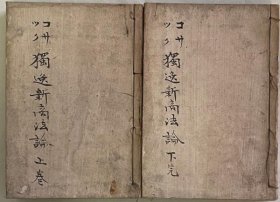 コサック
獨逸新商法論 上巻
コサック
獨逸新商法論 下完